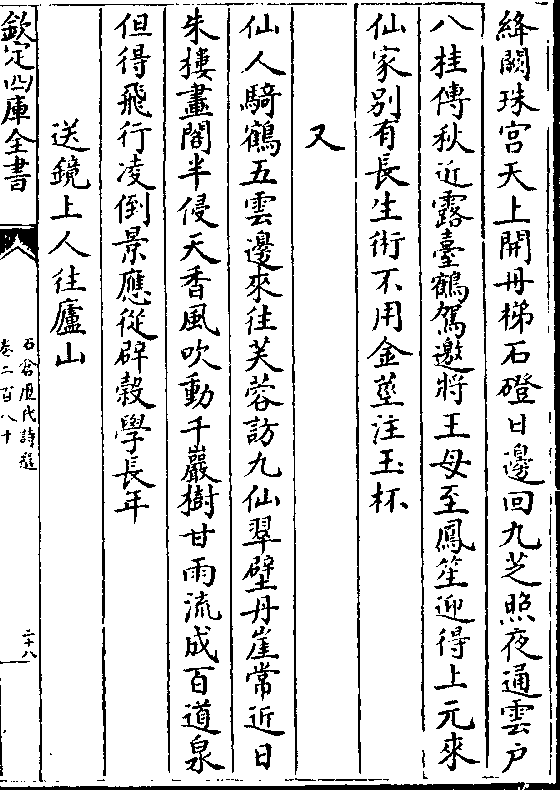 絳闕珠宮天上開丹梯石磴日邊回九芝照夜通雲戶
八桂傳秋近露臺鶴駕邀將王母至鳳笙迎得上元來
仙家別有長生術不用金莖注玉杯
又
仙人騎鶴五雲邊來往芙蓉訪九仙翠壁丹崖常近日
朱樓畫閣半侵天香風吹動千巖樹甘雨流成百道泉
但得飛行凌倒景應從辟穀學長年
送鏡上人往廬山
欽定四庫全書
石倉歷代詩選
卷二百八十
二十八